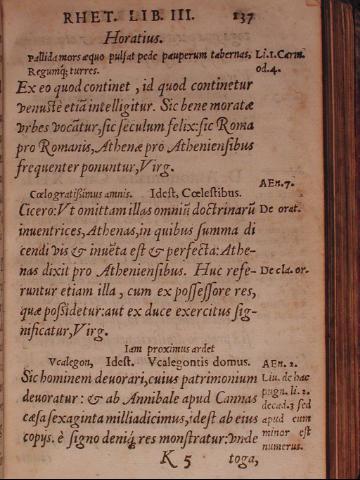 RHET. LIB. III. 137
Horatius.
Pallida mors æquo pulsat pede pauperum tabernas, Li.1.Carm.
Regumq́; turres. od.4.
Ex eo quod continet, id quod continetur
venustè etiã intelligitur. Sic bene moratæ
vrbes vocãtur, sic seculum felix: sic Roma
pro Romanis, Athenæ pro Atheniensibus
frequenter ponuntur, Virg.
AEn.7.
Cœlo gratißimus amnis. Idest, Cœlestibus.
Cicero: Vt omittam illas omniũ doctrinarũ De orat.
inuentrices, Athenas, in quibus summa di
cendi vis & inuẽta est & perfecta: Athe-
nas dixit pro Atheniensibus. Huc refe- De cla. or.
runtur etiam illa, cum ex possessore res,
quæ possidetur: aut ex duce exercitus sig-
nificatur, Virg.
Iam proximus ardet
Vcalegon, Idest. Vcalegontis domus. AEn. 2.
Sic hominem deuorari, cuius patrimonium Liu. de hac
pugn. li. 2.
deuoratur: & ab Annibale apud Cannas decad.3 sed
cæsa sexaginta milliadicimus, idest ab eius apud eum
copijs. è signo deniq́; res monstratur: vnde minor est
numerus.
K 5 toga,